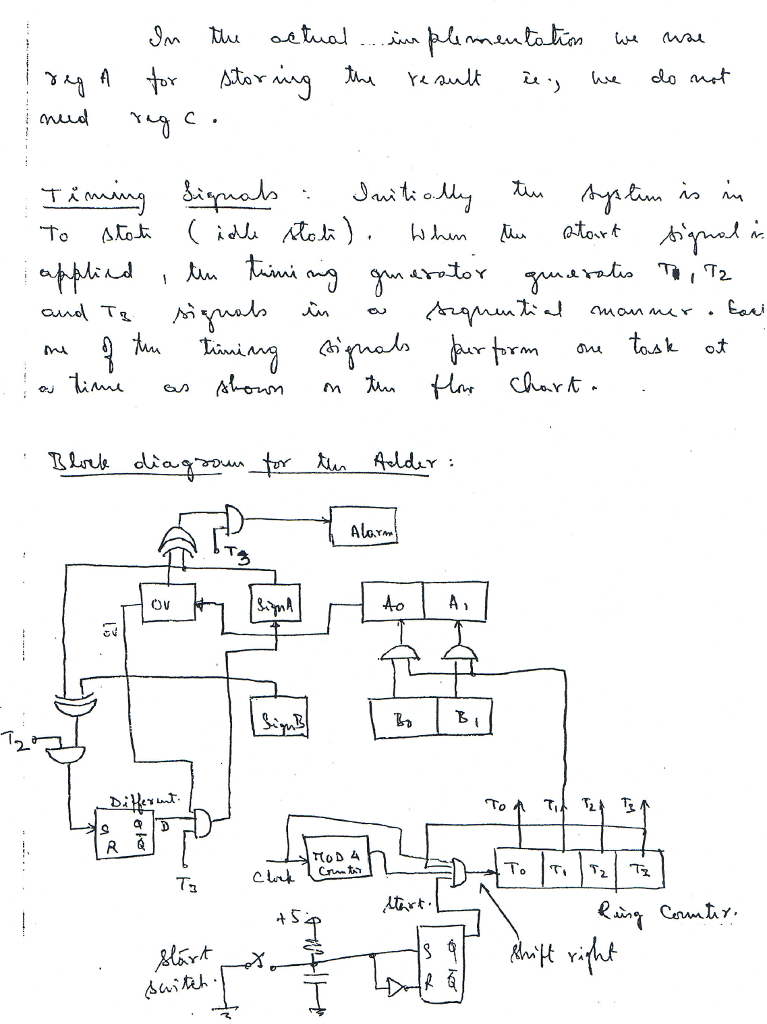 In the actual ... implementation we use
reg A for storing the result ie., we do not
need reg C.
Timing Signals : Initially the system is in
To state (idle state). When the start signal is
applied, the timing generator generates T1, T2
and T3 signals in a sequential manner. Each
one of the timing signals perform one task at
a time as shown on the flow chart.
Block diagram for the Adder :
Alarm
T3
OV
SignA
A0 A1
OV
SignB
B0 B1
T2
Different.
S Q D
R Q
T3
T0 T1 T2 T3
Clock
MOD 4
Counter
T0 T1 T2 T3
Start.
Ring Counter.
+5
Start
switch.
S Q
R Q
Shift right